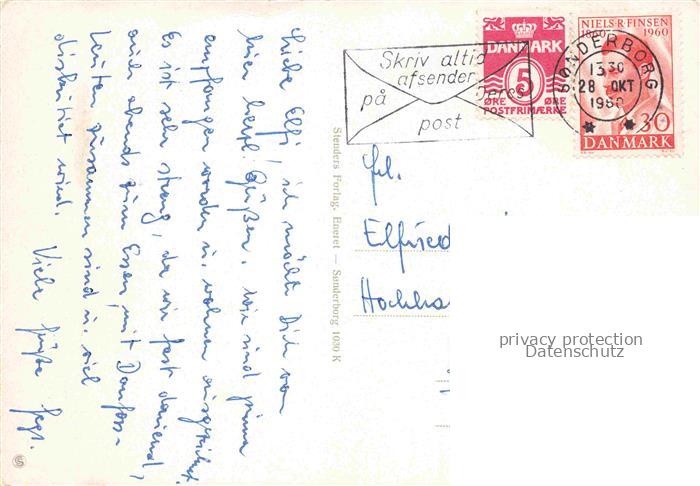 Liebe Elfi, ich möchte Dich von
hier herzl. Grüßen. Wir sind prima
empfangen worden u. wohnen ausgezeichnet.
Es ist sehr streng, da wir fast dauernd,
auch abends zum Essen, mit Danfoss-
Leuten zusammen sind u. viel
diskutiert wird. Viele Grüße
Stenders Forlag. Eneret — Sønderborg 1030 K
Skriv altid
afsender
på Deres
post
DANMARK
5
ØRE ØRE
POSTFRIMÆRKE
NIELS R FINSEN
1860 1960
30
DANMARK
SØNDERBORG
13.30
28 OKT
1960
Frl.
Elfried
Hochha
privacy protection
Datenschutz